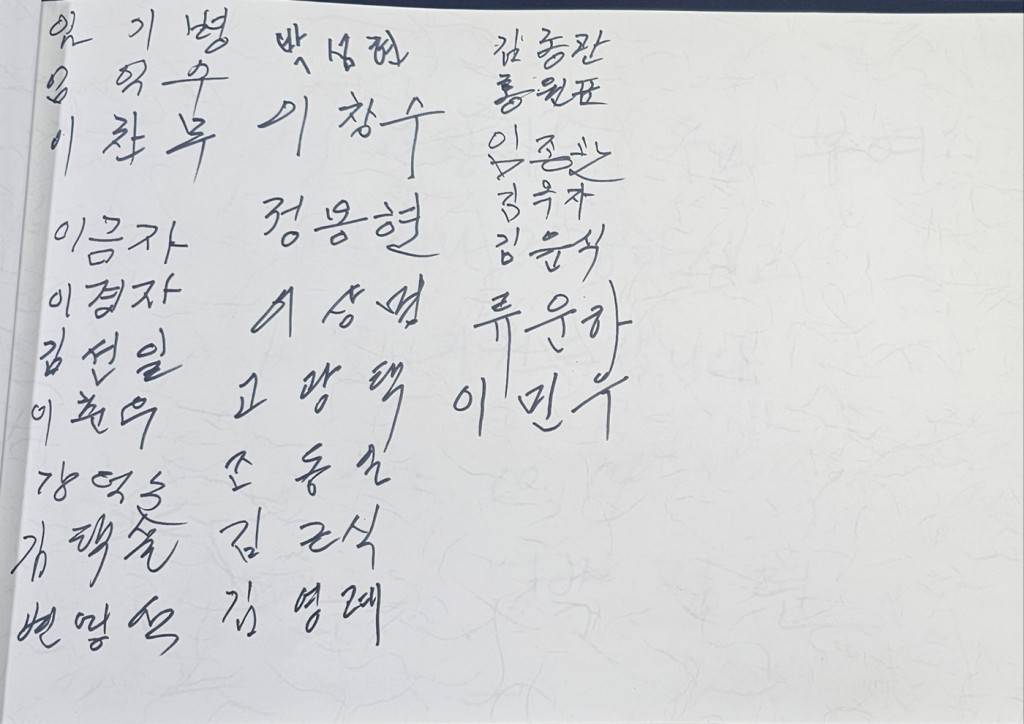 임기병
임억수
이찬무
이금자
이경자
김선일
이훈우
강억수
김택솔
변명석
박성현
이창수
정용현
이상범
고광택
조동근
김근식
김영래
김종관
홍원표
임종관
김옥자
김윤식
류운하
이민우